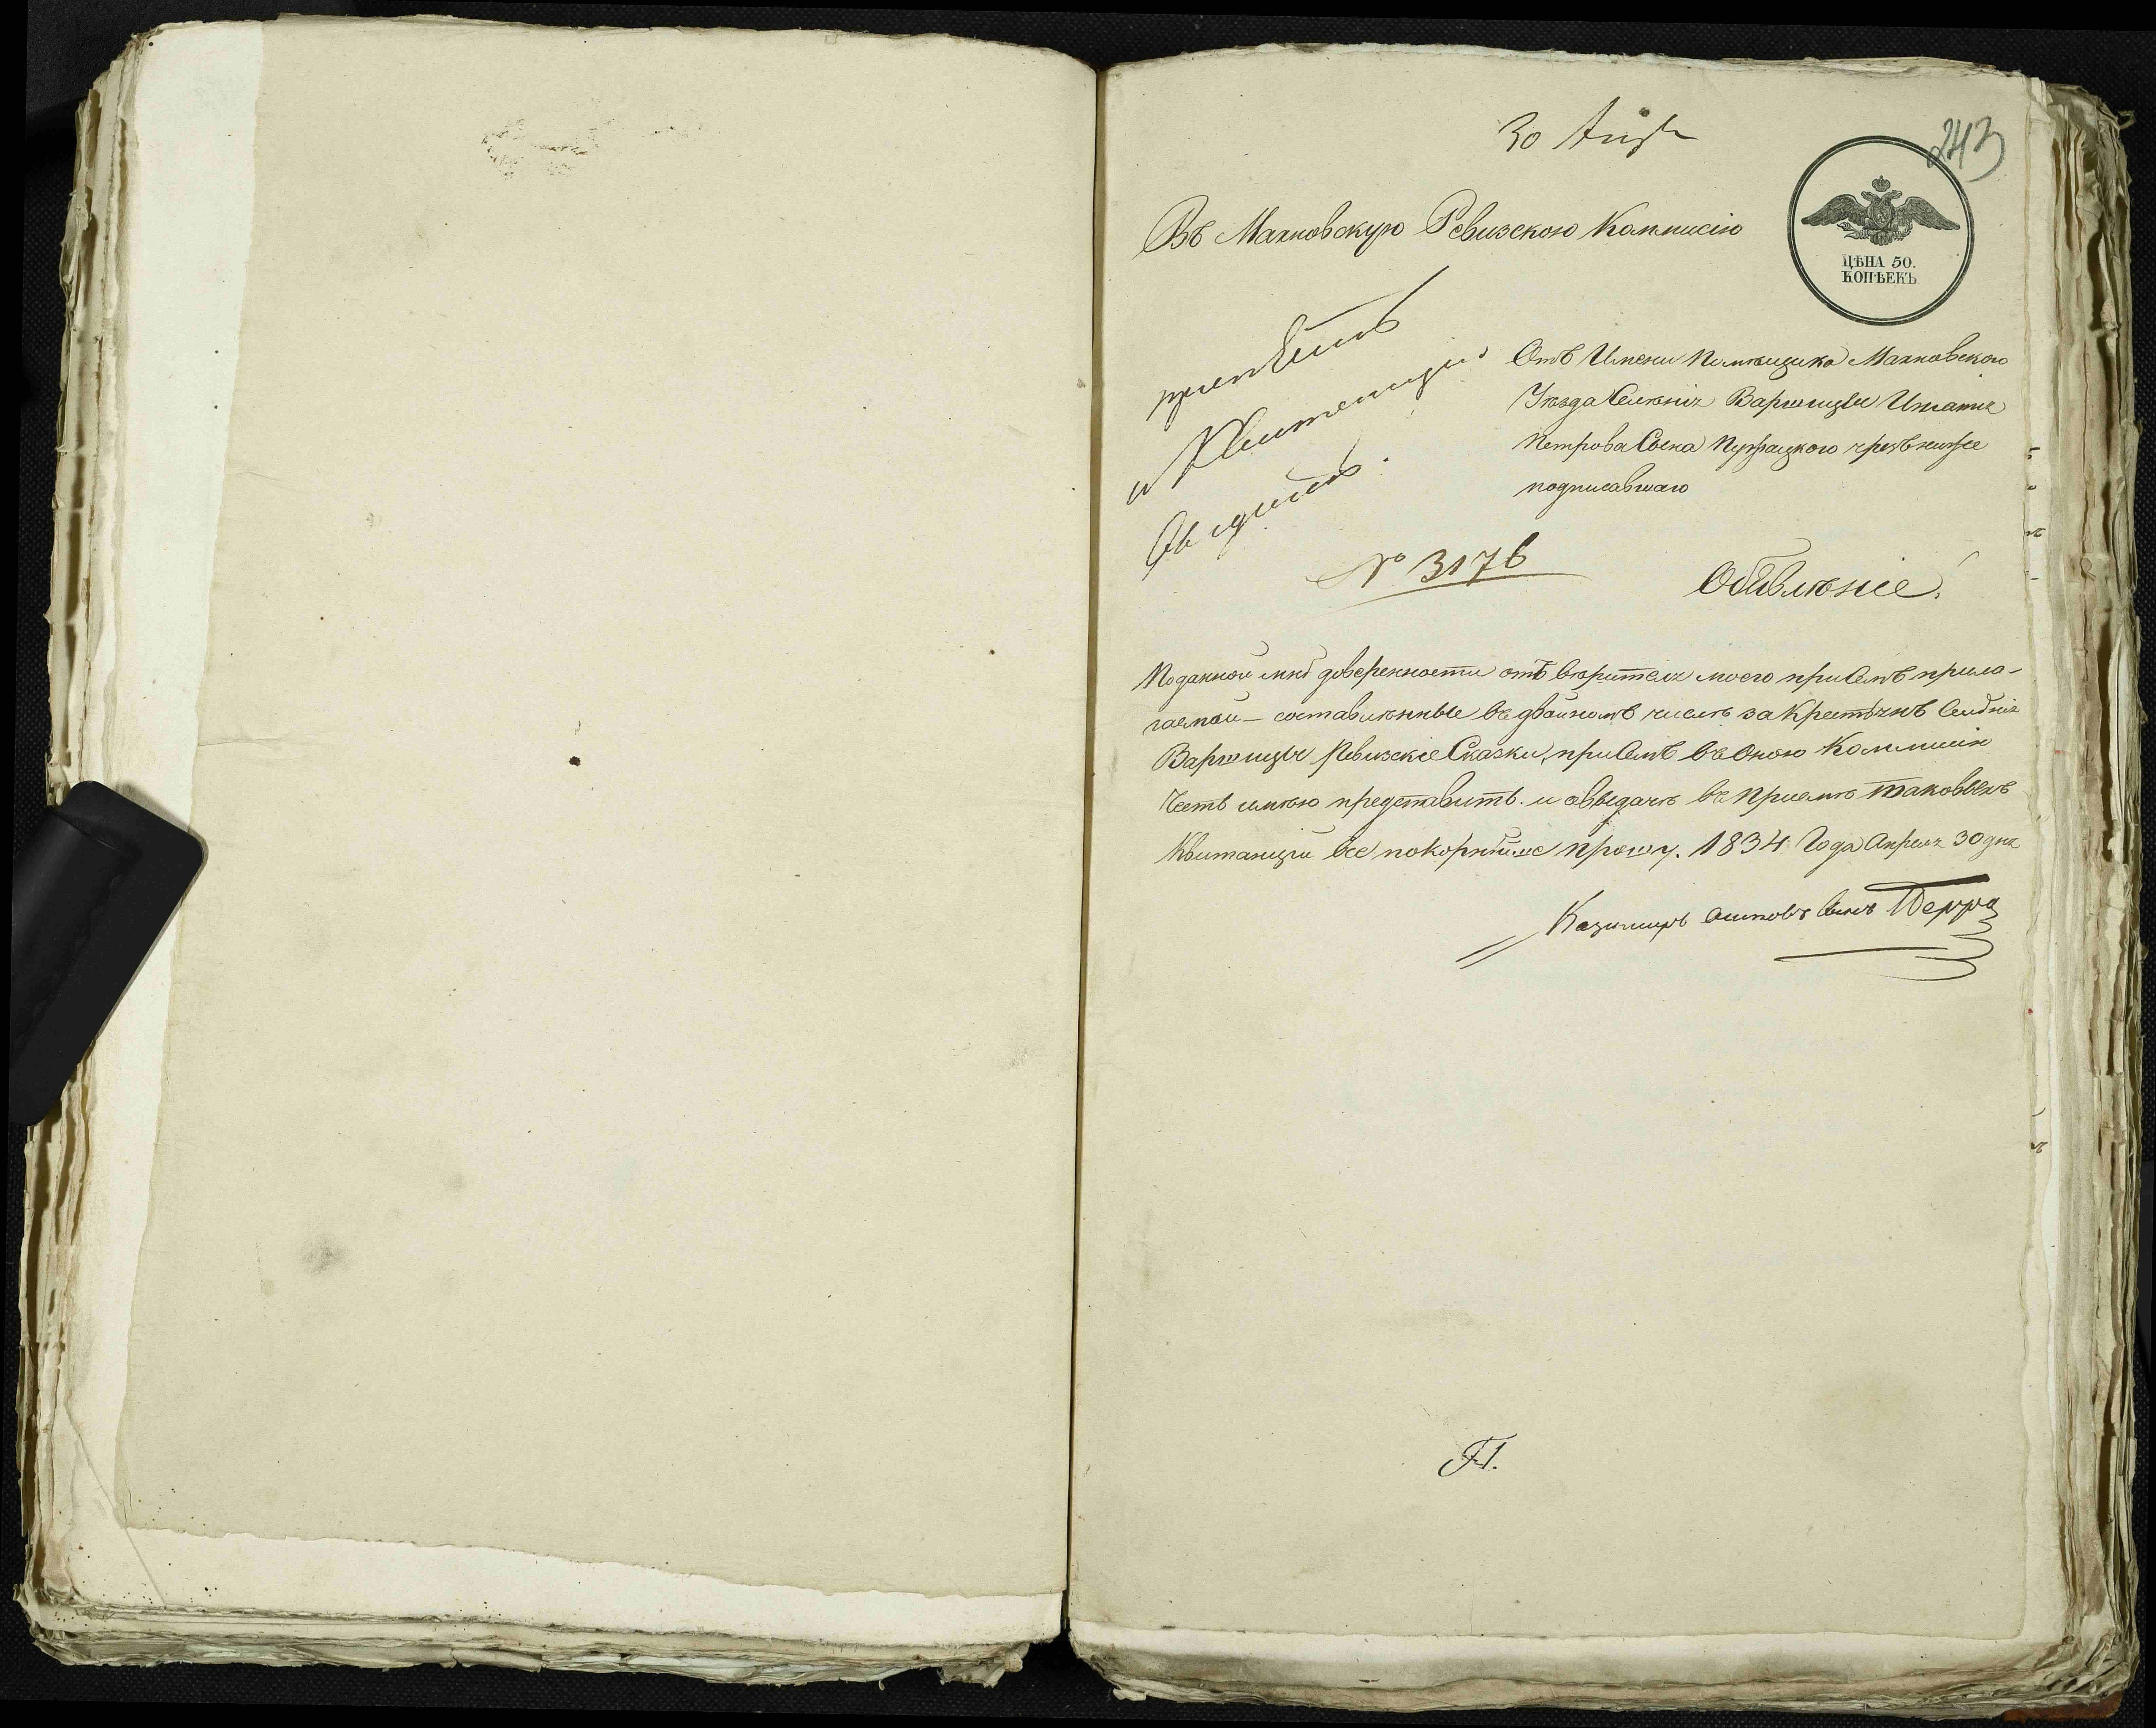 30 Апр
243
Въ Махновскую Ревизскою Коммисію
ЦѢНА 50.
КОПѢЕКЪ
принять
и Квитанцію
Отъ Имени Помѣщика Махновского
Уѣзда Селѣнія Варшицы Игнатія
Петрова Сына чрезъ ниже
подписавшаго
№ 3176
Обявленіе
Поданной мнѣ довѣренности отъ вѣрителя моего присемъ прила-
гаемой — составлѣнные въ двойномъ числѣ за Крестьянъ Селѣнія
Варшицы Ревизскіе Сказки, присемъ въ Оною Коммисію
Честь имѣю представить. и овыдачѣ въ Приемѣ таковыхъ
Квитанціи все покорнѣйше прошу. 1834 Года Апреля 30 дня
Казимиръ Сынъ